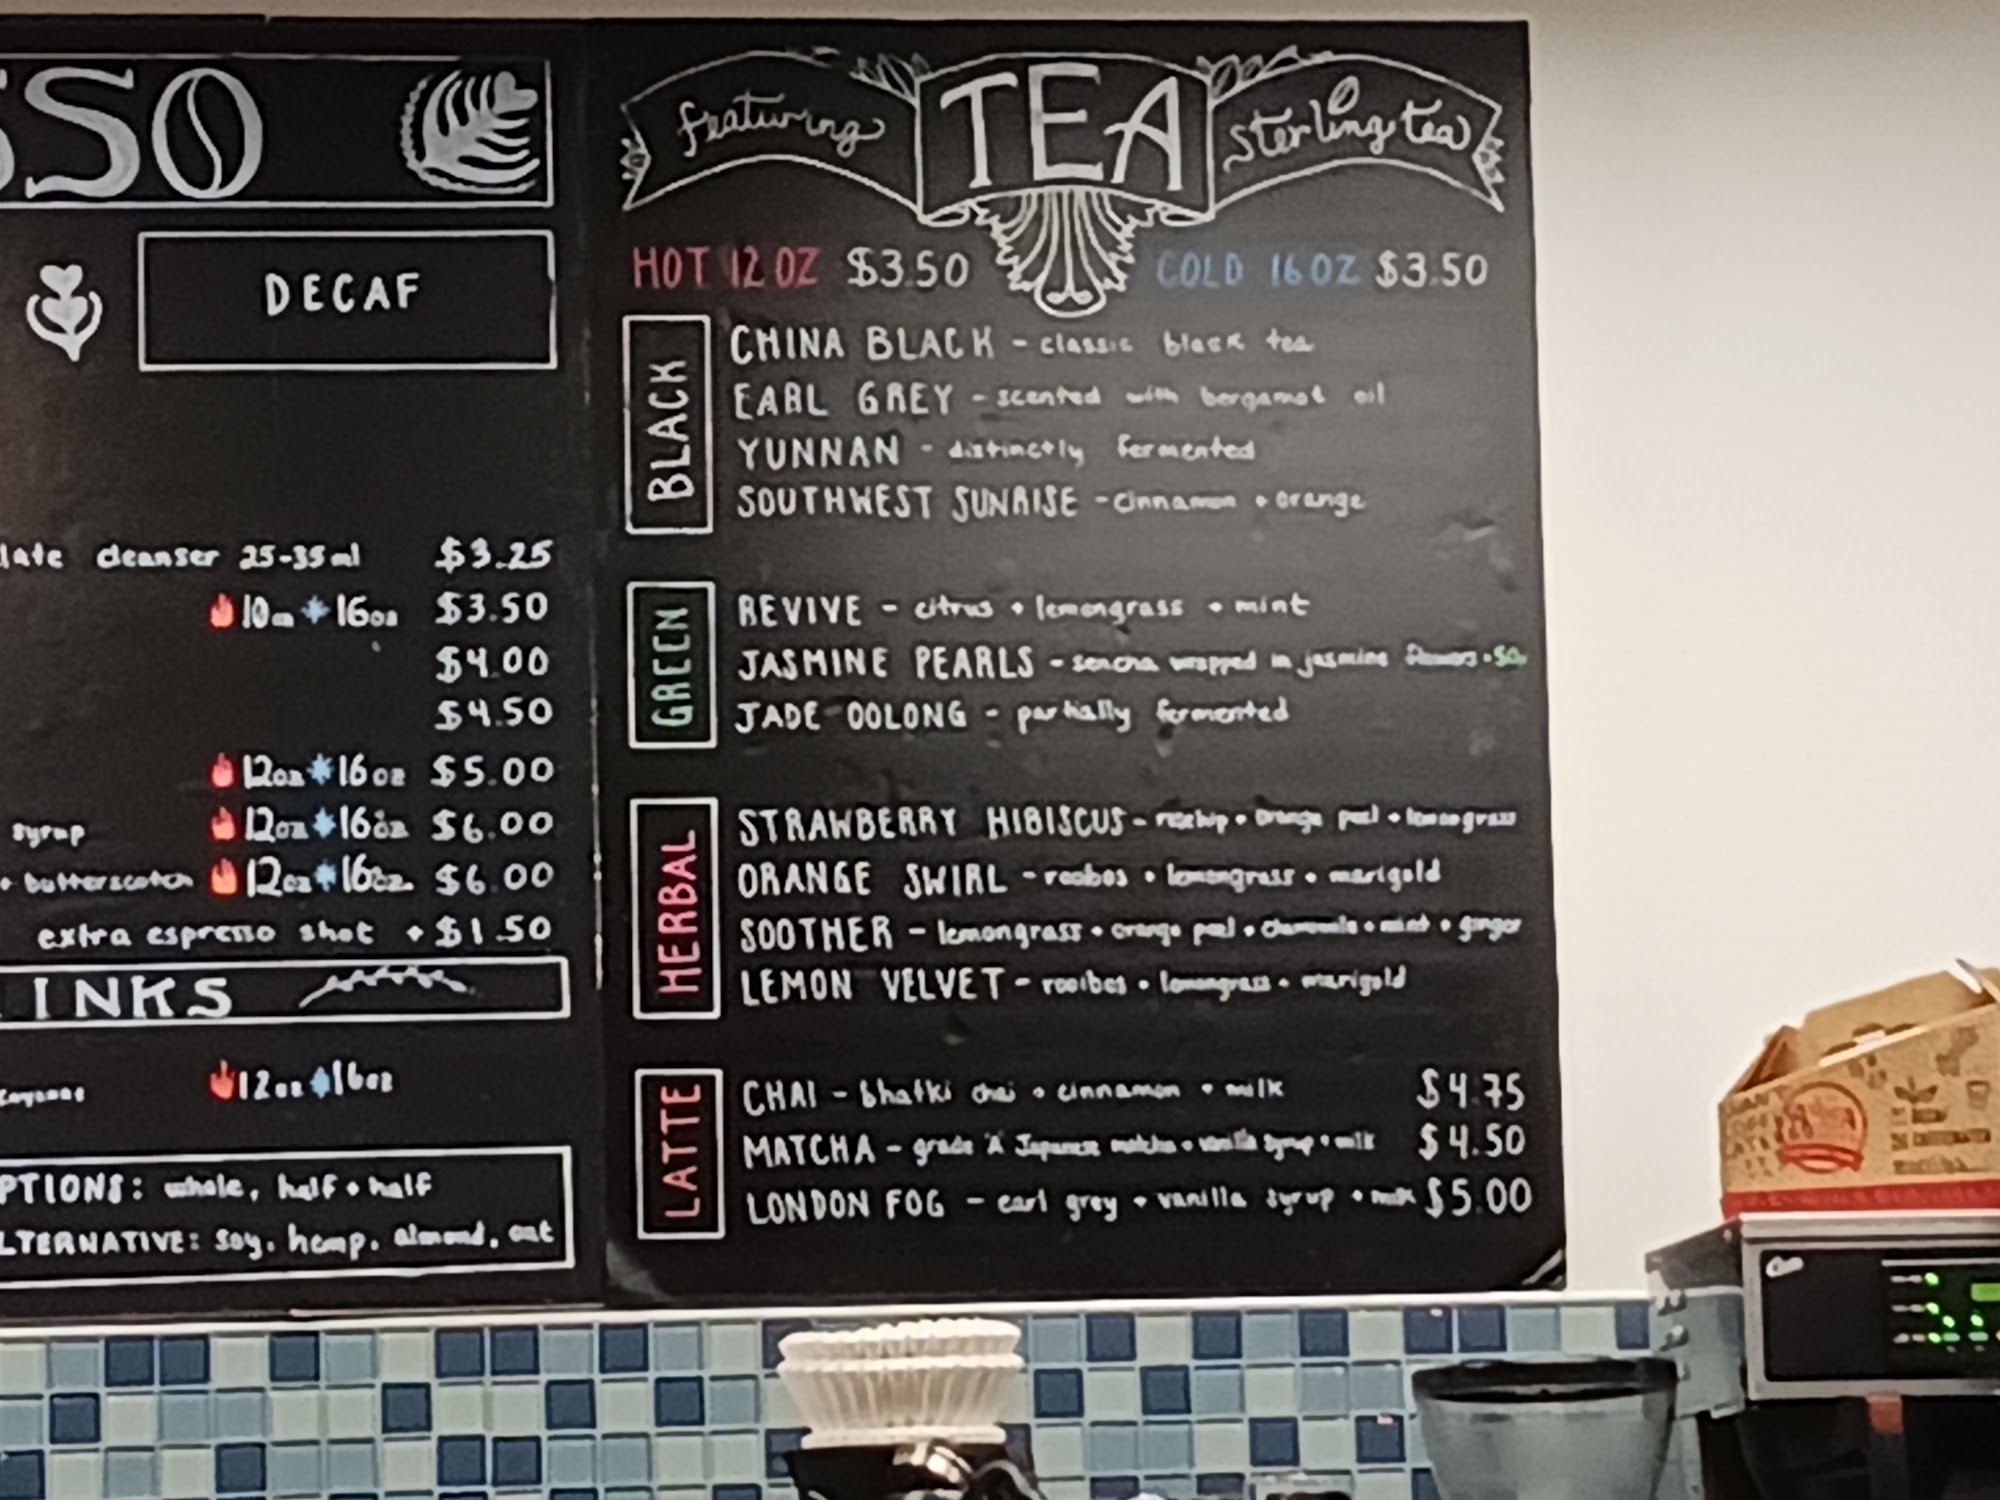 SSO
DECAF
cleanser 25-35ml $3.25
10oz 16oz $3.50
$4.00
$4.50
12oz 16oz $5.00
syrup 12oz 16oz $6.00
+ butterscotch 12oz 16oz $6.00
extra espresso shot +$1.50
INKS
12oz 16oz
PTIONS: whole, half + half
LTERNATIVE: soy, hemp, almond, oat
featuring TEA sterling tea
HOT 12 OZ $3.50 COLD 16 OZ $3.50
BLACK
CHINA BLACK - classic black tea
EARL GREY - scented with bergamot oil
YUNNAN - distinctly fermented
SOUTHWEST SUNRISE - cinnamon + orange
GREEN
REVIVE - citrus + lemongrass + mint
JASMINE PEARLS - sencha wrapped in jasmine flowers
JADE OOLONG - partially fermented
HERBAL
STRAWBERRY HIBISCUS - rosehip + orange peel + lemongrass
ORANGE SWIRL - rooibos + lemongrass + marigold
SOOTHER - lemongrass + orange peel + chamomile + mint + ginger
LEMON VELVET - rooibos + lemongrass + marigold
LATTE
CHAI - bhakti chai + cinnamon + milk $4.75
MATCHA - grade "A" Japanese matcha + vanilla syrup + milk $4.50
LONDON FOG - earl grey + vanilla syrup + milk $5.00